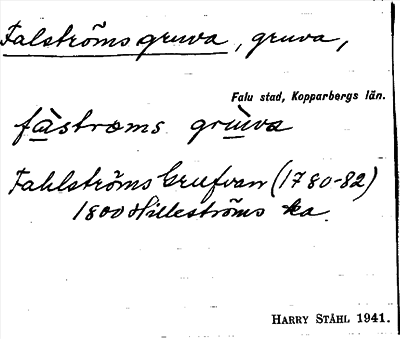 Falströmsgruva, gruva,
Falu stad, Kopparbergs län.
fàstrœms grùva
Fahlströms Grufvan (1780-82)
1800 Hilleströms ka.
HARRY STÅHL 1941.